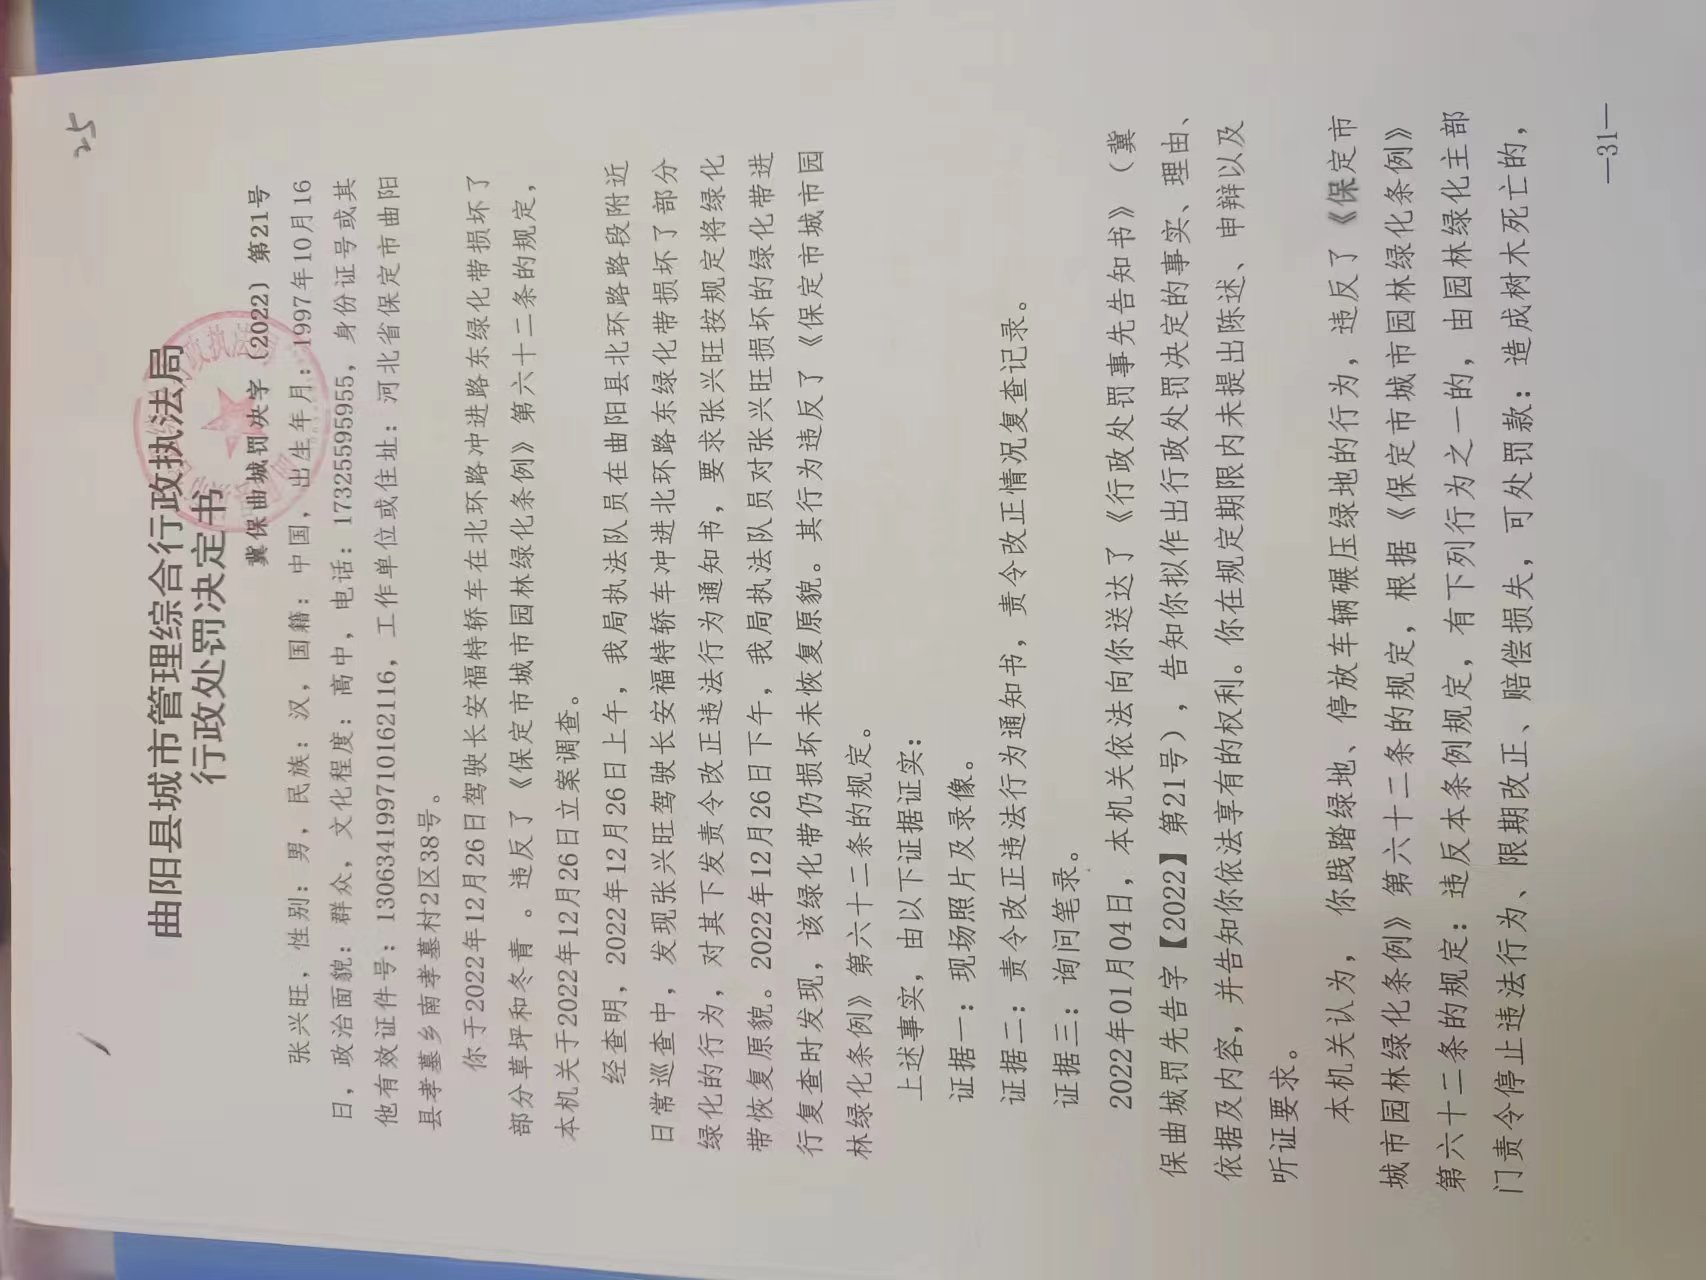 25
曲阳县城市管理综合行政执法局
行政处罚决定书
冀保曲城罚决字〔2022〕第21号
张兴旺，性别：男，民族：汉，国籍：中国，出生年月：1997年10月16
日，政治面貌：群众，文化程度：高中，电话：17325595955，身份证号或其
他有效证件号：130634199710162116，工作单位或住址：河北省保定市曲阳
县孝墓乡南孝墓村2区38号。
你于2022年12月26日驾驶长安福特轿车在北环路冲进路东绿化带损坏了
部分草坪和冬青。违反了《保定市城市园林绿化条例》第六十二条的规定，
本机关于2022年12月26日立案调查。
经查明，2022年12月26日上午，我局执法队员在曲阳县北环路路段附近
日常巡查中，发现张兴旺驾驶长安福特轿车冲进北环路东绿化带损坏了部分
绿化的行为，对其下发责令改正违法行为通知书，要求张兴旺按规定将绿化
带恢复原貌。2022年12月26日下午，我局执法队员对张兴旺损坏的绿化带进
行复查时发现，该绿化带仍损坏未恢复原貌。其行为违反了《保定市城市园
林绿化条例》第六十二条的规定。
上述事实，由以下证据证实：
证据一：现场照片及录像。
证据二：责令改正违法行为通知书，责令改正情况复查记录。
证据三：询问笔录。
2022年01月04日，本机关依法向你送达了《行政处罚事先告知书》（冀
保曲城罚先告字【2022】第21号），告知你拟作出行政处罚决定的事实、理由、
依据及内容，并告知你依法享有的权利。你在规定期限内未提出陈述、申辩以及
听证要求。
本机关认为，你践踏绿地、停放车辆碾压绿地的行为，违反了《保定市
城市园林绿化条例》第六十二条的规定，根据《保定市城市园林绿化条例》
第六十二条的规定：违反本条例规定，有下列行为之一的，由园林绿化主部
门责令停止违法行为、限期改正、赔偿损失，可处罚款：造成树木死亡的，
—31—